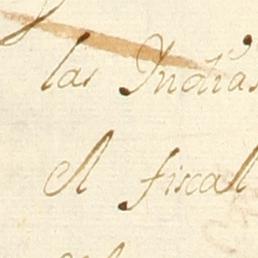 las Indias
el fiscal